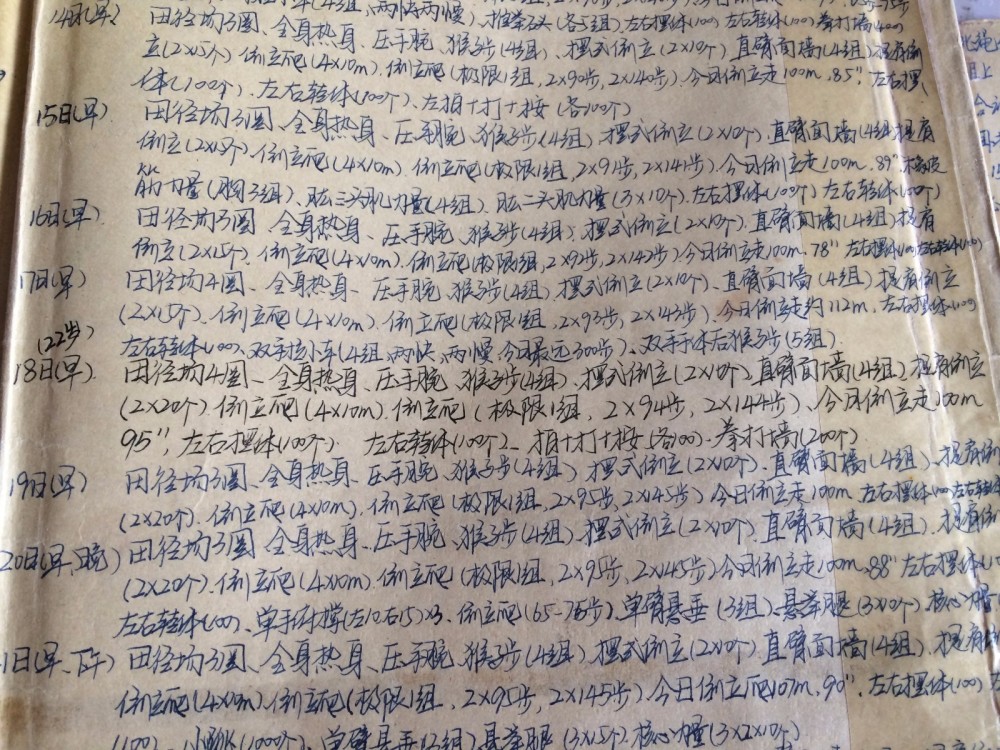 14日(早) 田径场3圈、全身热身、压手腕、猴子步(4组)、摆式倒立(2×10个)直臂面墙(4组)提肩倒
立(2×15个)倒立爬(4×10m)、倒立爬(极限1组, 2×90步, 2×140步)今日倒立走100m、85"、左右摆
体(100个)、左右转体(100个)、左拍+打+按(各100个)
15日(早) 田径场3圈、全身热身、压手腕、猴子步(4组)、摆式倒立(2×10个)、直臂面墙(4组)提肩
倒立(2×15个)、倒立爬(4×10m)倒立爬(极限1组, 2×91步, 2×141步)今日倒立走100m、89"
力量(胸3组)、肱三头肌力量(4组)、肱二头肌力量(3×10个)、左右摆体(100个)左右转体(100个)
16日(早) 田径场3圈、全身热身、压手腕、猴子步(4组)、摆式倒立(2×10个)、直臂面墙(4组)提肩
倒立(2×15个)、倒立爬(4×10m)、倒立爬(极限1组, 2×92步, 2×142步)今日倒立走100m、78"左右摆体(100)左右转体(100)
17日(早) 田径场4圈、全身热身、压手腕、猴子步(4组)、摆式倒立(2×10个)、直臂面墙(4组)提肩倒立
(2×15个)、倒立爬(4×10m)、倒立爬(极限1组, 2×93步, 2×143步)、今日倒立走约112m、左右摆体(100)
(22步) 左右转体(100)、双手拉小车(4组、两快、两慢、今日最远300步)、双手体后猴子步(5组)
18日(早) 田径场4圈、全身热身、压手腕、猴子步(4组)、摆式倒立(2×10个)、直臂面墙(4组)、提肩倒立
(2×20个)、倒立爬(4×10m)、倒立爬(极限1组, 2×94步, 2×144步)、今日倒立走100m
95"、左右摆体(100个) 左右转体(100个)、拍+打+按(各100)、拳打墙(200个)
19日(早) 田径场3圈、全身热身、压手腕、猴子步(4组)摆式倒立(2×10个)、直臂面墙(4组)、提肩倒
(2×20个)、倒立爬(4×10m)、倒立爬(极限1组, 2×95步, 2×145步)今日倒立走100m、左右摆体(100)左右转
20日(早、晚) 田径场3圈、全身热身、压手腕、猴子步(4组)、摆式倒立(2×10个)、直臂面墙(4组)、提肩倒
(2×20个)、倒立爬(4×10m)、倒立爬(极限1组, 2×95步, 2×145步)今日倒立走100m、88"左右摆体(10
左右转体(100)、单手斜撑(左10右15)×3、倒立爬(65-76步)、单臂悬垂(3组)、悬举腿(3×10个)核心力量
1日(早、下午) 田径场3圈、全身热身、压手腕、猴子步(4组)、摆式倒立(2×10个)直臂面墙(4组)、提肩
倒立爬(4×10m)、倒立爬(极限1组, 2×95步, 2×145步)今日倒立爬107m、90"、左右摆体(100)左
(100)、小跳(1000个)、单臂悬垂(3组)、悬举腿(3×15个)、核心力量(3×2×10个)